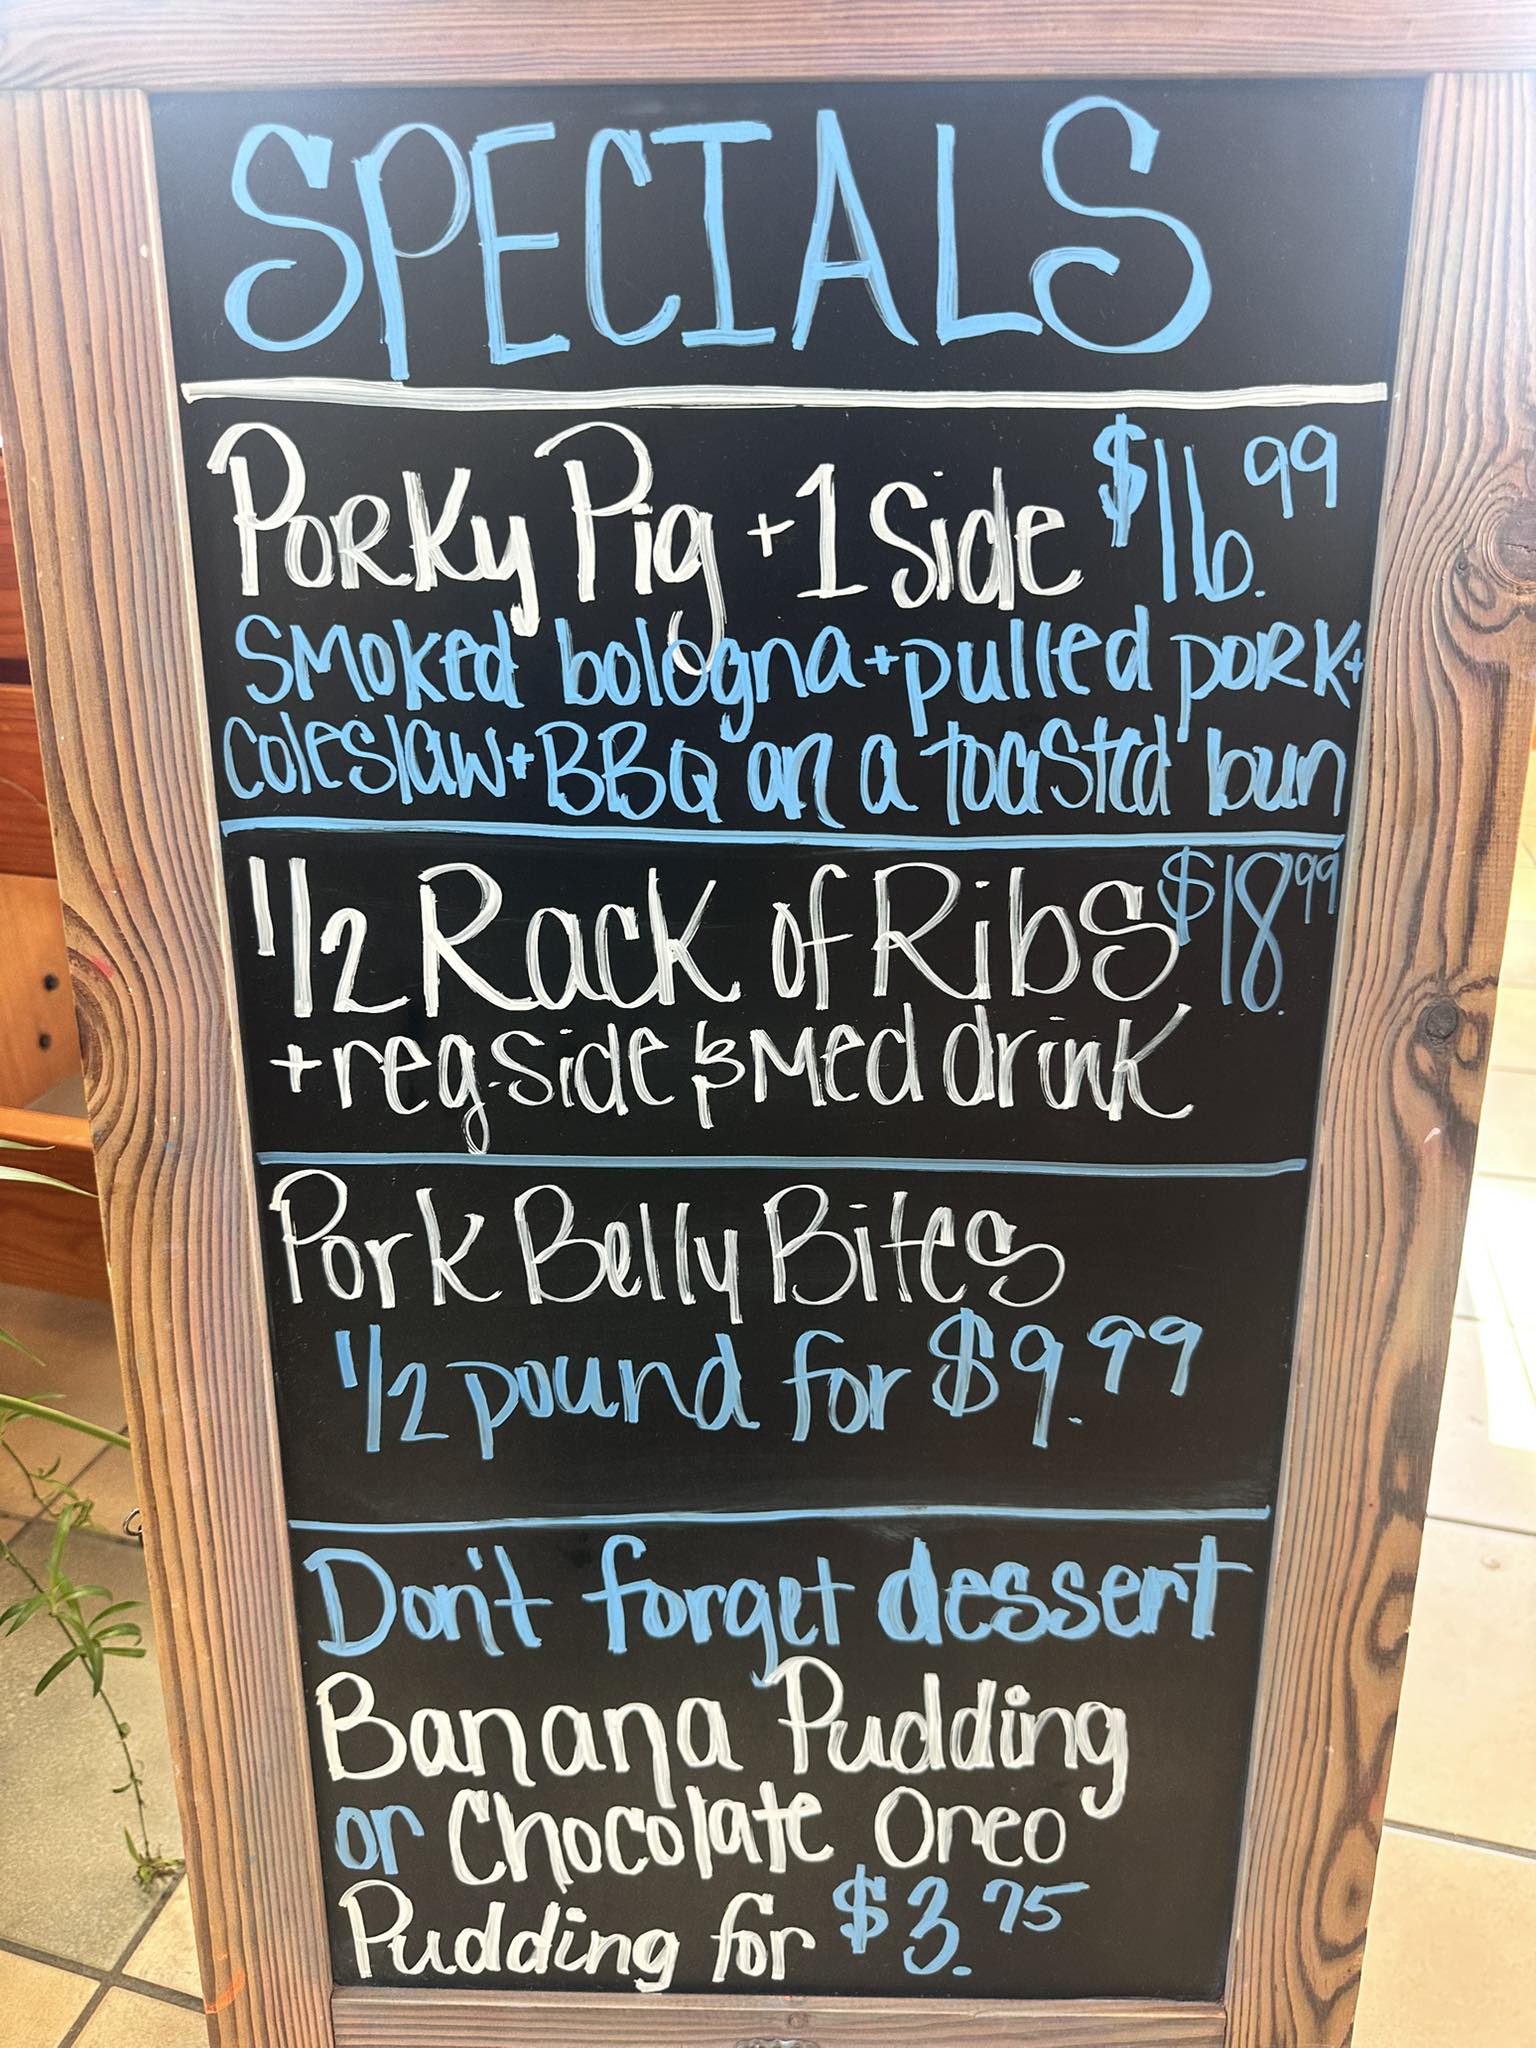 SPECIALS
Porky Pig + 1 Side $16.99
Smoked bologna + pulled pork +
Coleslaw + BBQ on a toasted bun
1/2 Rack of Ribs $18.99
+ reg. side & Med drink
Pork Belly Bites
1/2 pound for $9.99
Don't forget dessert
Banana Pudding
or Chocolate Oreo
Pudding for $3.75